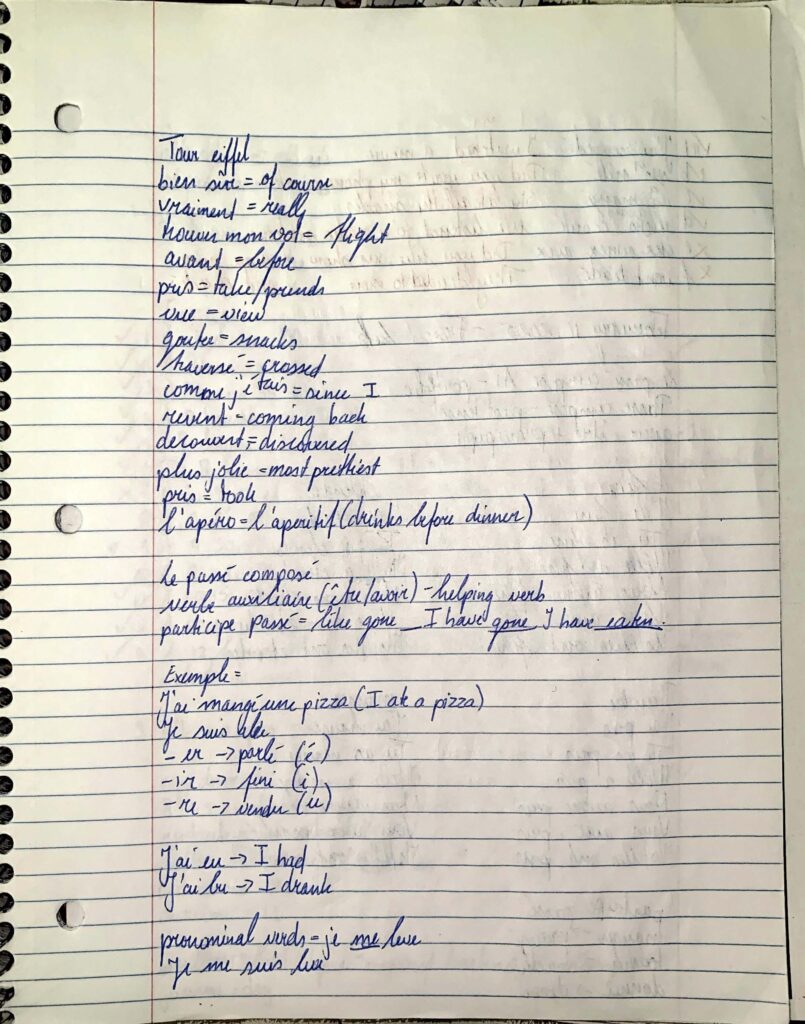 Tour eiffel
bien sûr = of course
vraiment = really
trouver mon vol = flight
avant = before
pris = take/prends
vue = view
gouter = snacks
traversé = crossed
comme j'étais = since I
revient = coming back
decouvert = discovered
plus jolie = most prettiest
pris = took
l'apéro = l'aperitif (drinks before dinner)
Le passé composé
verbe auxiliaire (être/avoir) - helping verb
participe passé = like gone _ I have gone I have eaten.
Exemple =
J'ai mangé une pizza (I ate a pizza)
Je suis allée
- er -> parlé (é)
- ir -> fini (i)
- re -> vendu (u)
J'ai eu -> I had
J'ai bu -> I drank
pronominal verbs = je me leve
Je me suis